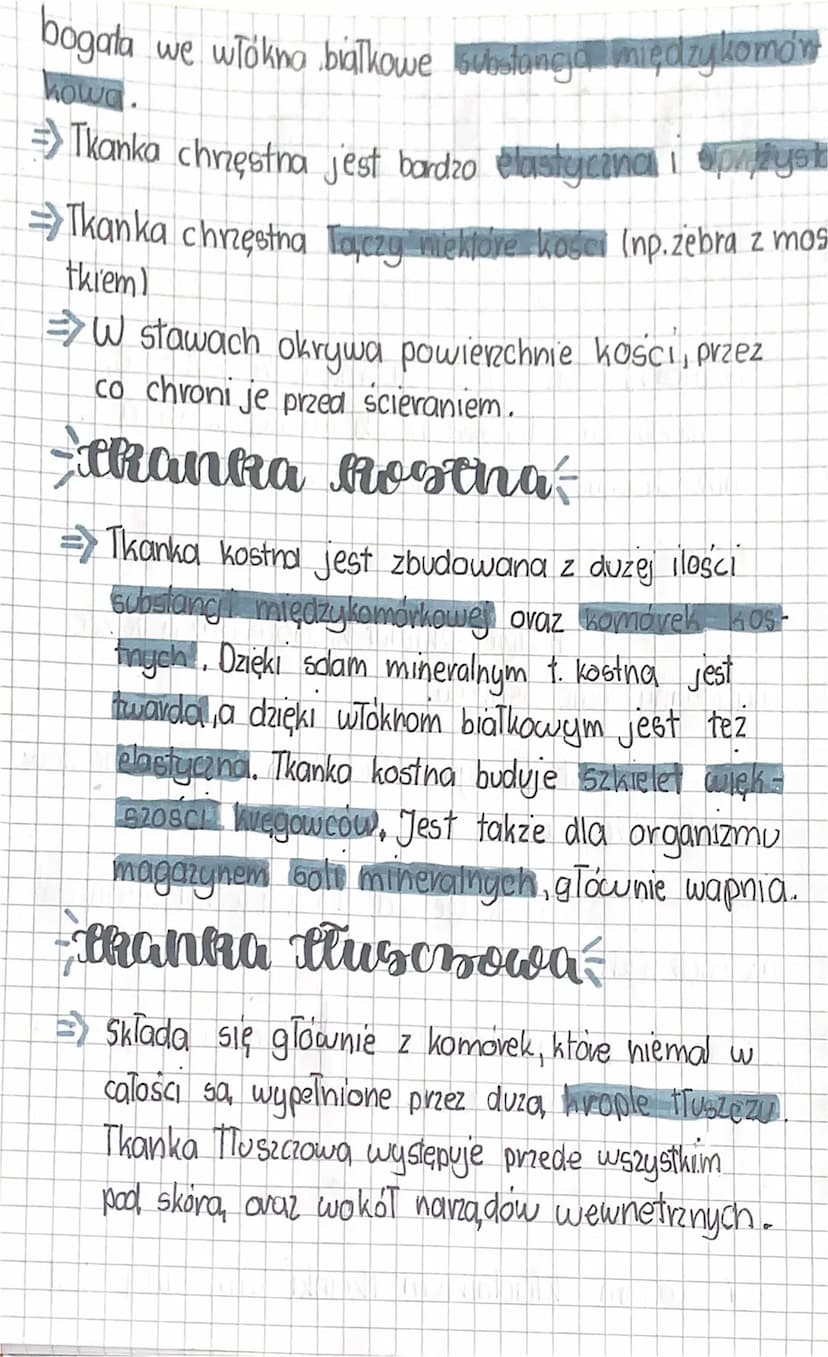 bogata we włókna białkowe substancja międzykomór
kowa.
⇒ Tkanka chrzęstna jest bardzo elastyczna i sprężyst
⇒ Tkanka chrzęstna łączy niektóre kości (np. żebra z mos
tkiem)
⇒ W stawach okrywa powierzchnie kości, przez
co chroni je przed ścieraniem.
tkanka kostna
⇒ Tkanka kostna jest zbudowana z dużej ilości
substancji międzykomórkowej oraz komórek kos-
tnych. Dzięki solom mineralnym t. kostna jest
twarda, a dzięki włóknom białkowym jest też
elastyczna. Tkanka kostna buduje szkielet więk-
szości kręgowców. Jest także dla organizmu
magazynem soli mineralnych, głównie wapnia.
tkanka tłuszczowa
⇒ Składa się głównie z komórek, które niemal w
całości są wypełnione przez dużą kroplę tłuszczu.
Tkanka tłuszczowa występuje przede wszystkim
pod skórą oraz wokół narządów wewnętrznych.